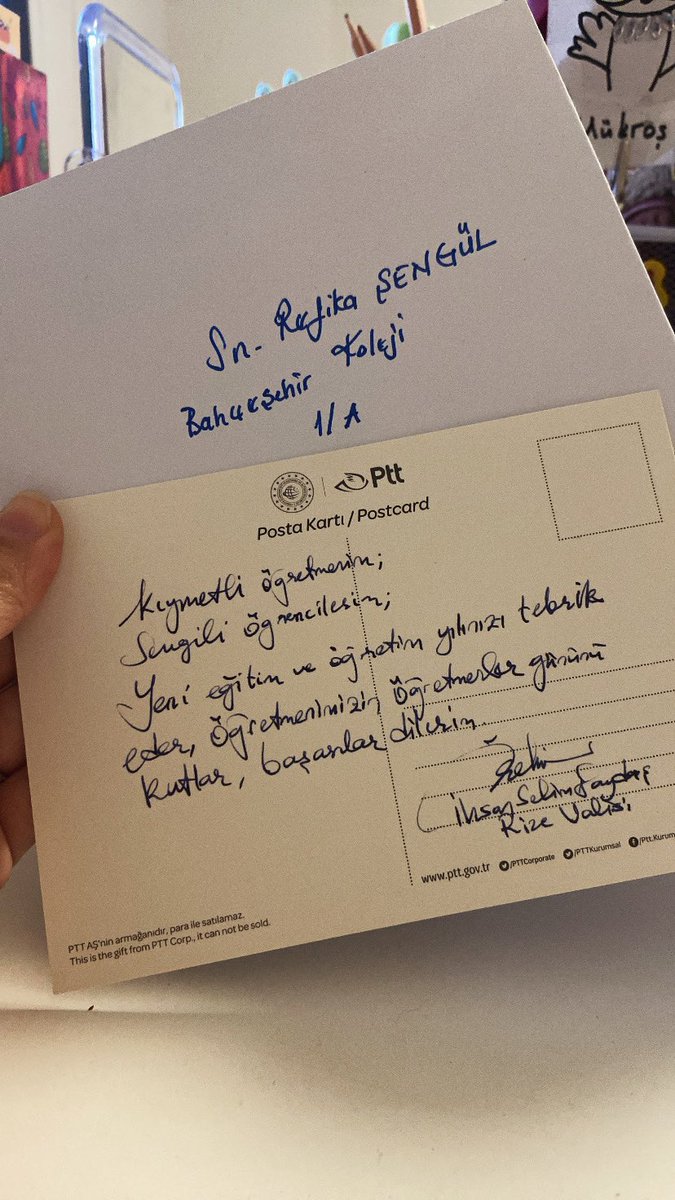 Mükroş
Sn. Refika ŞENGÜL
Bahçeşehir Koleji
1/A
Ptt
Posta Kartı / Postcard
Kıymetli öğretmenim;
Sevgili öğrencilerim;
Yeni eğitim ve öğretim yılınızı tebrik
eder, Öğretmenimizin Öğretmenler gününü
kutlar, başarılar dilerim.
İhsan Selim Baydaş
Rize Valisi
www.ptt.gov.tr /PTTCorporate /PTTKurumsal /Ptt.Kurum
PTT AŞ'nin armağanıdır, para ile satılamaz.
This is the gift from PTT Corp., it can not be sold.